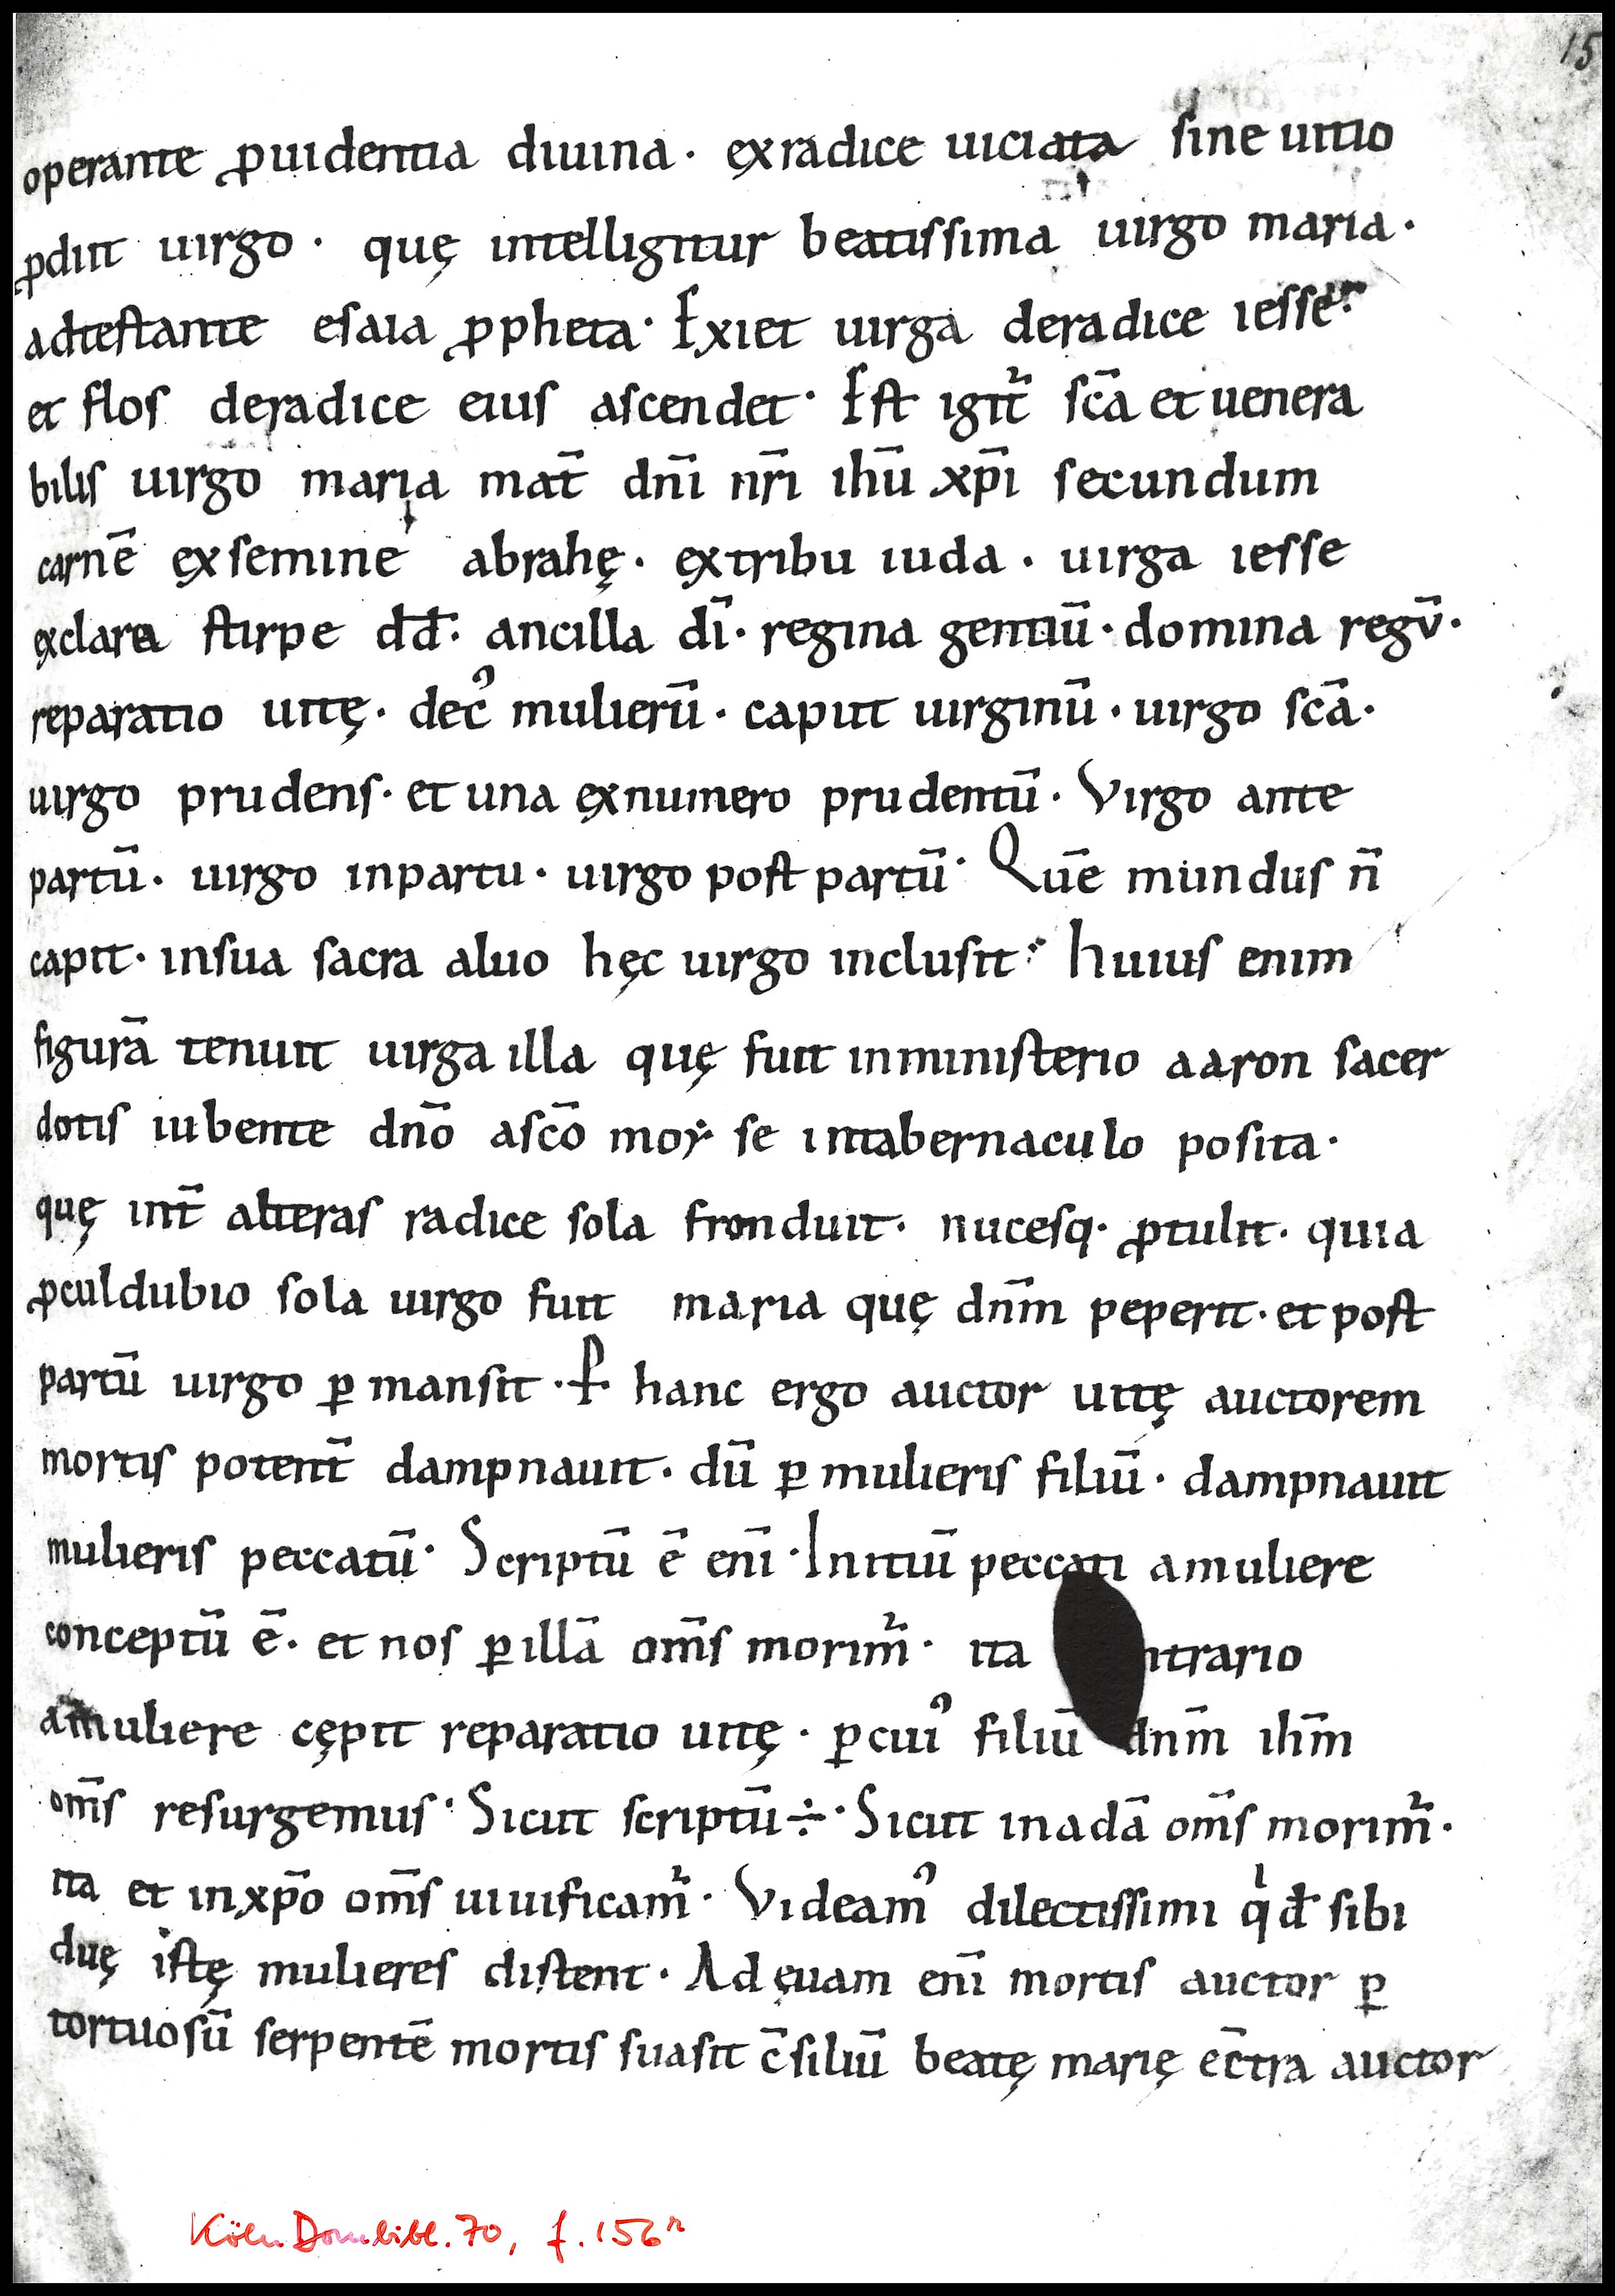 15
operante ꝓuidentia diuina · ex radice uiciata sine uitio
ꝓdiit uirgo · quę intelligitur beatissima uirgo maria ·
adtestante esaia ꝓpheta · Exiet uirga deradice iesse
et flos deradice eius ascendet · Est igit᷑ sc̄a et uenera
bilis uirgo maria mat̄ dn̄i nr̄i ih̄u xp̄i secundum
carnē ex semine abrahę · ex tribu iuda · uirga iesse
exclara stirpe dđ · ancilla dī · regina gentiū · domina regū ·
reparatio uitę · decꝰ mulierū · caput uirginū · uirgo sc̄a ·
uirgo prudens · et una exnumero prudentū · Virgo ante
partū · uirgo inpartu · uirgo post partū · Quē mundus n̄
capit · insua sacra aluo hęc uirgo inclusit · huius enim
figurā tenuit uirga illa quę fuit inministerio aaron sacer
dotis iubente dn̄o asc̄o moy se intabernaculo posita ·
quę int̄ alteras radice sola fronduit · nucesq · ꝓtulit · quia
ꝓculdubio sola uirgo fuit maria quę dn̄m peperit · et post
partū uirgo ꝑ mansit · Ꝑ hanc ergo auctor uitę auctorem
mortis potent̄ dampnauit · dū ꝑ mulieris filiū · dampnauit
mulieris peccatū · Scriptū ē enī · Initiū peccati amuliere
conceptū ē · et nos ꝑ illā om̄s morim᷑ · ita ntrario
amuliere cępit reparatio uitę · ꝑ cuiꝰ filiū dn̄m ih̄m
om̄s resurgemus · Sicut scriptū ÷ · Sicut inadā om̄s morim᷑ ·
ita et inxp̄o om̄s uiuificam᷑ · Videamꝰ dilectissimi qͥđ sibi
duę istę mulieres distent · Ad ęuam enī mortis auctor ꝑ
tortuosū serpentē mortis suasit c̄siliū beatę marię ec̄tra auctor
Köln Dombibl. 70, f. 156ʳ